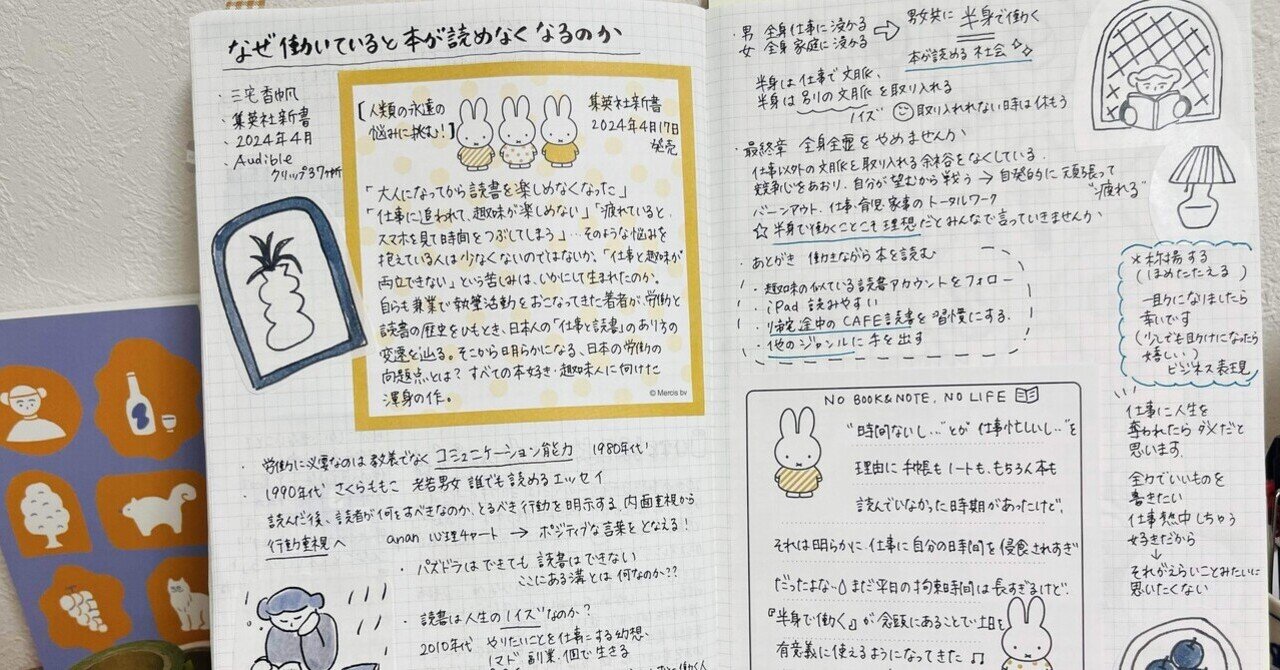 なぜ働いていると本が読めなくなるのか
・三宅香帆
・集英社新書
・2024年4月
・Audible
クリップ37ヶ所
[人類の永遠の
悩みに挑む!]
集英社新書
2024年4月17日
発売
「大人になってから読書を楽しめなくなった」
「仕事に追われて、趣味が楽しめない」「疲れていると、
スマホを見て時間をつぶしてしまう」…そのような悩みを
抱えている人は少なくないのではないか、「仕事と趣味が
両立できない」という苦しみは、いかにして生まれたのか。
自らも兼業で執筆活動をおこなってきた著者が、労働と
読書の歴史をひもとき、日本人の「仕事と読書」のあり方の
変遷を辿る。そこから明らかになる、日本の労働の
問題点とは? すべての本好き・趣味人に向けた
渾身の作。
© Mercis bv
・労働に必要なのは教養でなくコミュニケーション能力 1980年代!
・1990年代 さくらももこ 老若男女 誰でも読めるエッセイ
読んだ後、読者が何をすべきなのか、とるべき行動を明示する 内面重視から
行動重視へ anan 心理チャート → ポジティブな言葉をとなえる!
・パズドラはできても 読書はできない
ここにある溝とは 何なのか??
・読書は人生のノイズなのか?
2010年代 やりたいことを仕事にする幻想、
ノマド 副業、個で生きる
・男 全身仕事に浸かる
女 全身家庭に浸かる
⇨ 男女共に 半身で働く
本が読める社会
半身は仕事で文脈、
半身は別の文脈を取り入れる
ノイズ 取り入れれない時は休もう
・最終章 全身全霊をやめませんか
仕事以外の文脈を取り入れる余裕をなくしている.
競争心をあおり、自分が望むから戦う → 自発的に頑張って
"疲れる"
バーンアウト、仕事・育児・家事のトータルワーク
☆ 半身で働くことこそ理想だとみんなで言っていきませんか
・あとがき 働きながら本を読む
・趣味の似ている読書アカウントをフォロー
・iPad 読みやすい
・帰宅途中のCAFE読書を習慣にする.
・他のジャンルに手を出す
NO BOOK&NOTE, NO LIFE
"時間ないし.."とか"仕事忙しいし.."を
理由に手帳もノートも、もちろん本も
読んでいなかった時期があったけど、
それは明らかに仕事に自分の時間を侵食されすぎ
だったよな〜 まだ平日の拘束時間は長すぎるけど、
『半身で働く』が念頭にあることで土日を
有意義に使えるようになってきた♫
×称揚する
(ほめたたえる)
一助になりましたら
幸いです
(少しでも助けになったら
嬉しい)
ビジネス表現
仕事に人生を
奪われたらダメだと
思います.
全力でいいものを
書きたい
仕事熱中しちゃう
好きだから
↓
それがえらいことみたいに
思いたくない